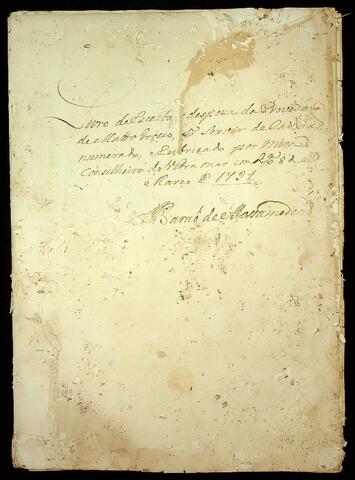 Livro de Receita, e despeza da Provedoria
de Matto Groço, q̃ Servir de Caixa
numerado, e Rubricado por mim
Conselheiro do Ultramar em 28 de
Março D 1794
Barаõ de Mossamedes